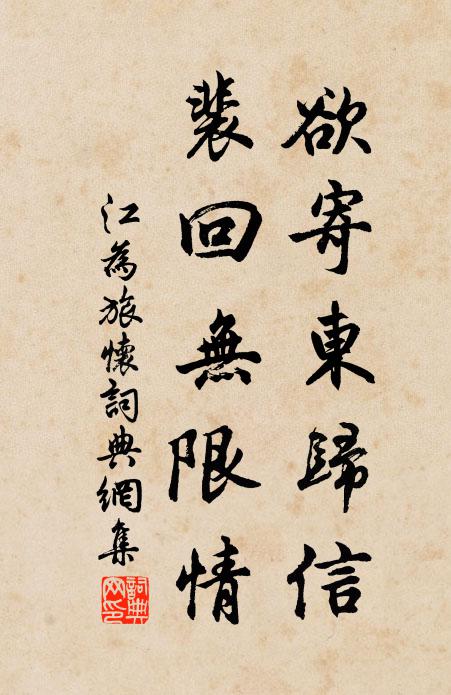 欲寄東歸信
裴回無限情
江為旅懷詞典網集
詞典网印